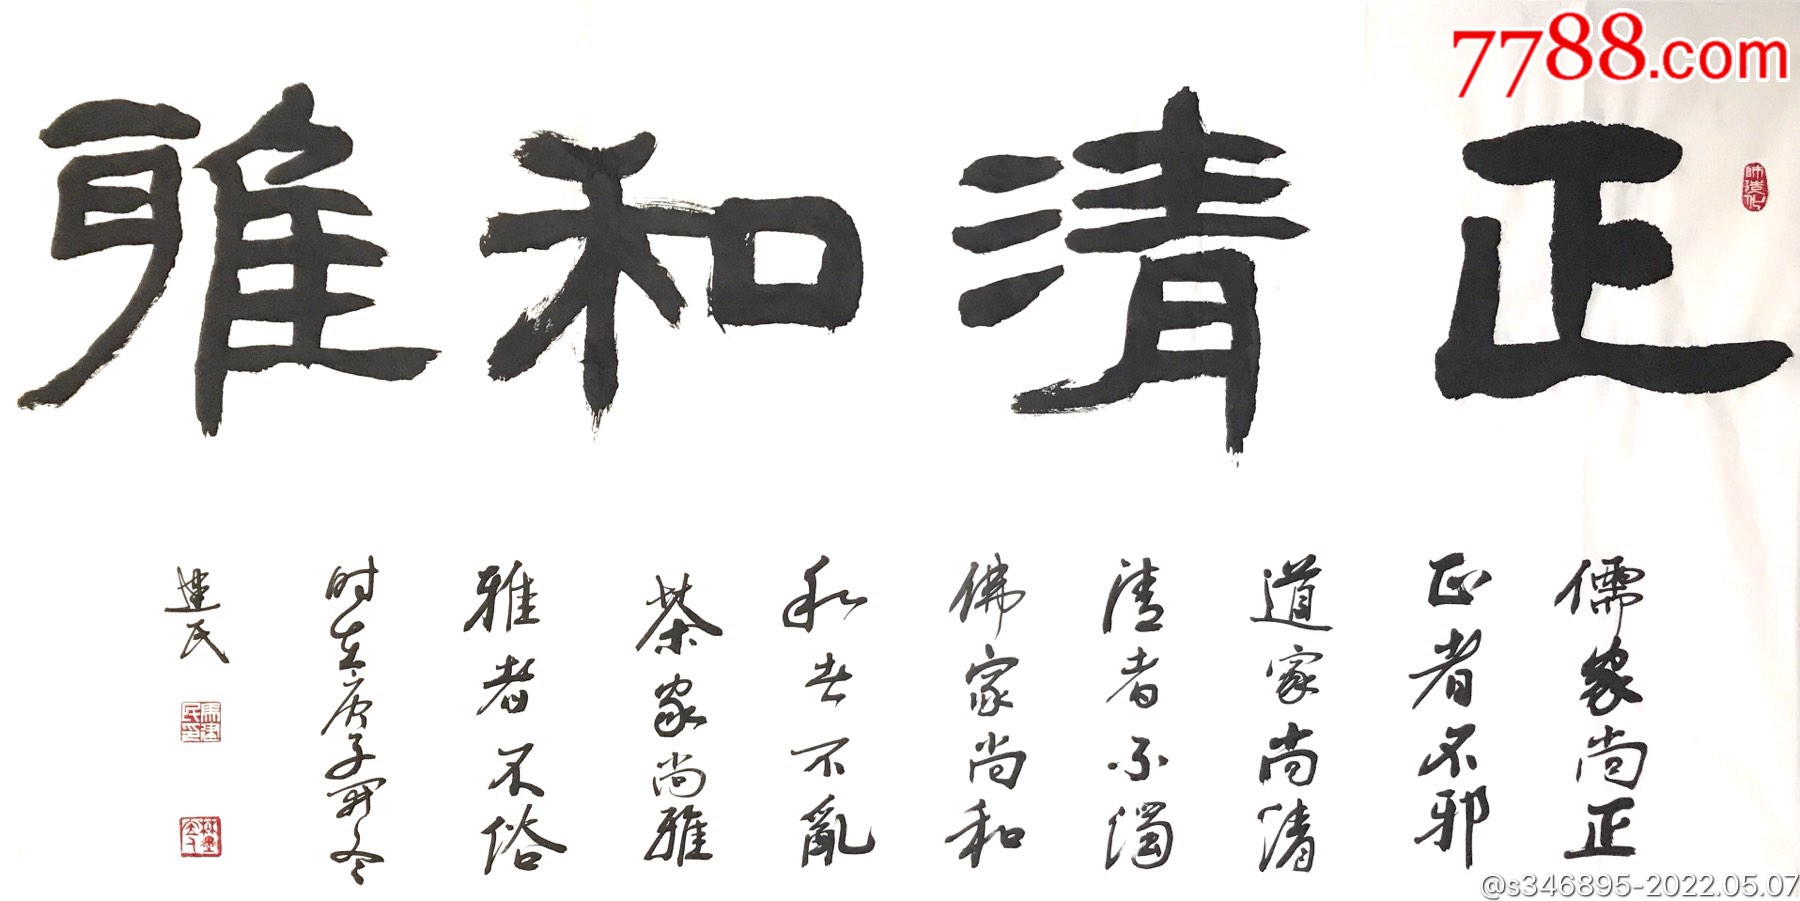 7788.com
正清和雅
儒家尚正
正者不邪
道家尚清
清者不濁
佛家尚和
和者不亂
茶家尚雅
雅者不俗
时在庚子孟冬
建民
馬建民印
@s346895-2022.05.07